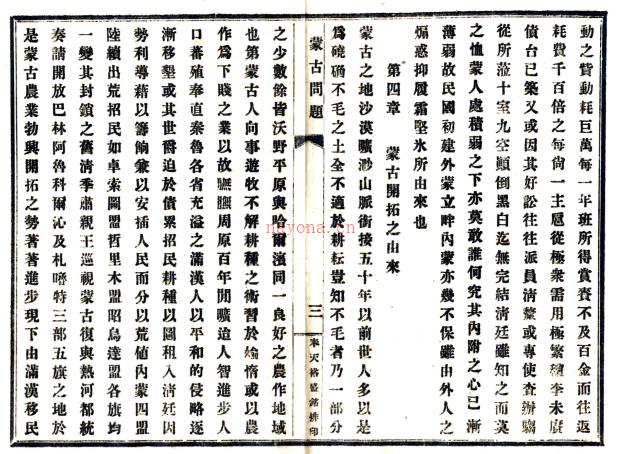 動之貲動耗巨萬每一年班所得賞賚不及百金而往返
耗費千百倍之每尚一主扈從極衆需用極繁殯李未庶
債台已築又或因其好訟往往派員清釐或專使查辦騶
從所蒞十室九空顚倒黑白迄無完結清廷雖知之而莫
之恤蒙人處積弱之下亦莫敢誰何究其內附之心已漸
薄弱故民國初建外蒙立畔內蒙亦幾不保雖由外人之
煽惑抑履霜堅氷所由來也
第四章 蒙古開拓之由來
蒙古之地沙漠曠渺山脈銜接五十年以前世人多以是
爲磽确不毛之土全不適於耕耘豈知不毛者乃一部分
蒙古問題
三
奉天裕盛銘排印
之少數餘皆沃野平原與哈爾濱同一良好之農作地域
也第蒙古人向事遊牧不解耕種之術習於媮惰或以農
作爲下賤之業以故膴膴周原百年閒曠迨人智進步人
口蕃殖奉直秦魯各省充溢之滿漢人以平和的侵略逐
漸移墾或其世爵迫於債累招民耕種以圖租入清廷因
勢利導藉以籌餉兼以安插人民而分以荒値內蒙四盟
陸續出荒招民如卓索圖盟哲里木盟昭烏達盟各旗均
一變其封鎖之舊清季肅親王巡視蒙古復與熱河都統
奏請開放巴林阿魯科爾沁及札嚕特三部五旗之地於
是蒙古農業勃興開拓之勢著著進步現下由滿漢移民
nayona.cn